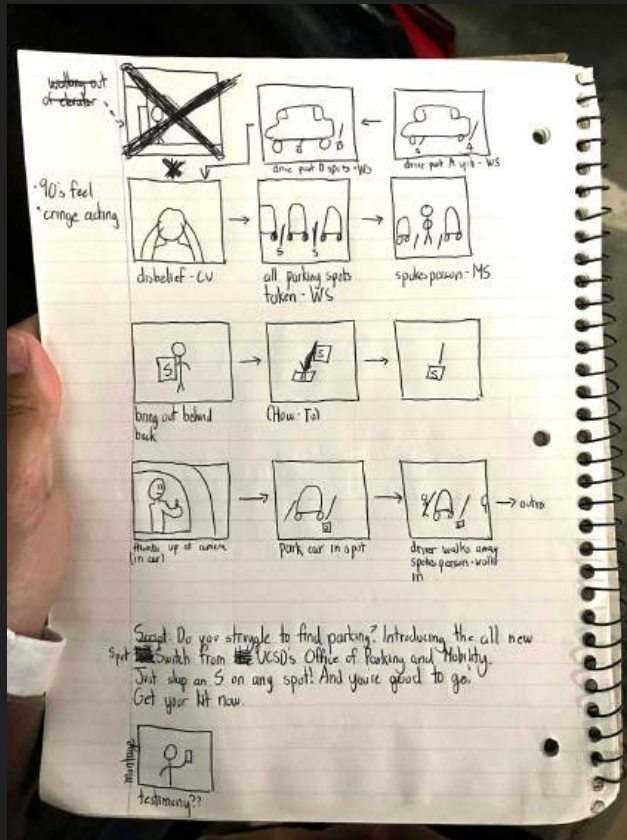 walking out
of elevator
drive past D spots - WS
drive past A spots - WS
·90's feel
·cringe acting
S S
disbelief - CU
all parking spots
taken - WS
spokesperson - MS
S
S
S
bring out behind
back
(How-To)
thumbs up at camera
(in car)
park car in spot
driver walks away
spokesperson walks
in
→ outro
Script: Do you struggle to find parking? Introducing the all new
Spot Switch from UCSD's Office of Parking and Mobility.
Just slap an S on any spot! And you're good to go!
Get your kit now.
montage
testimony??